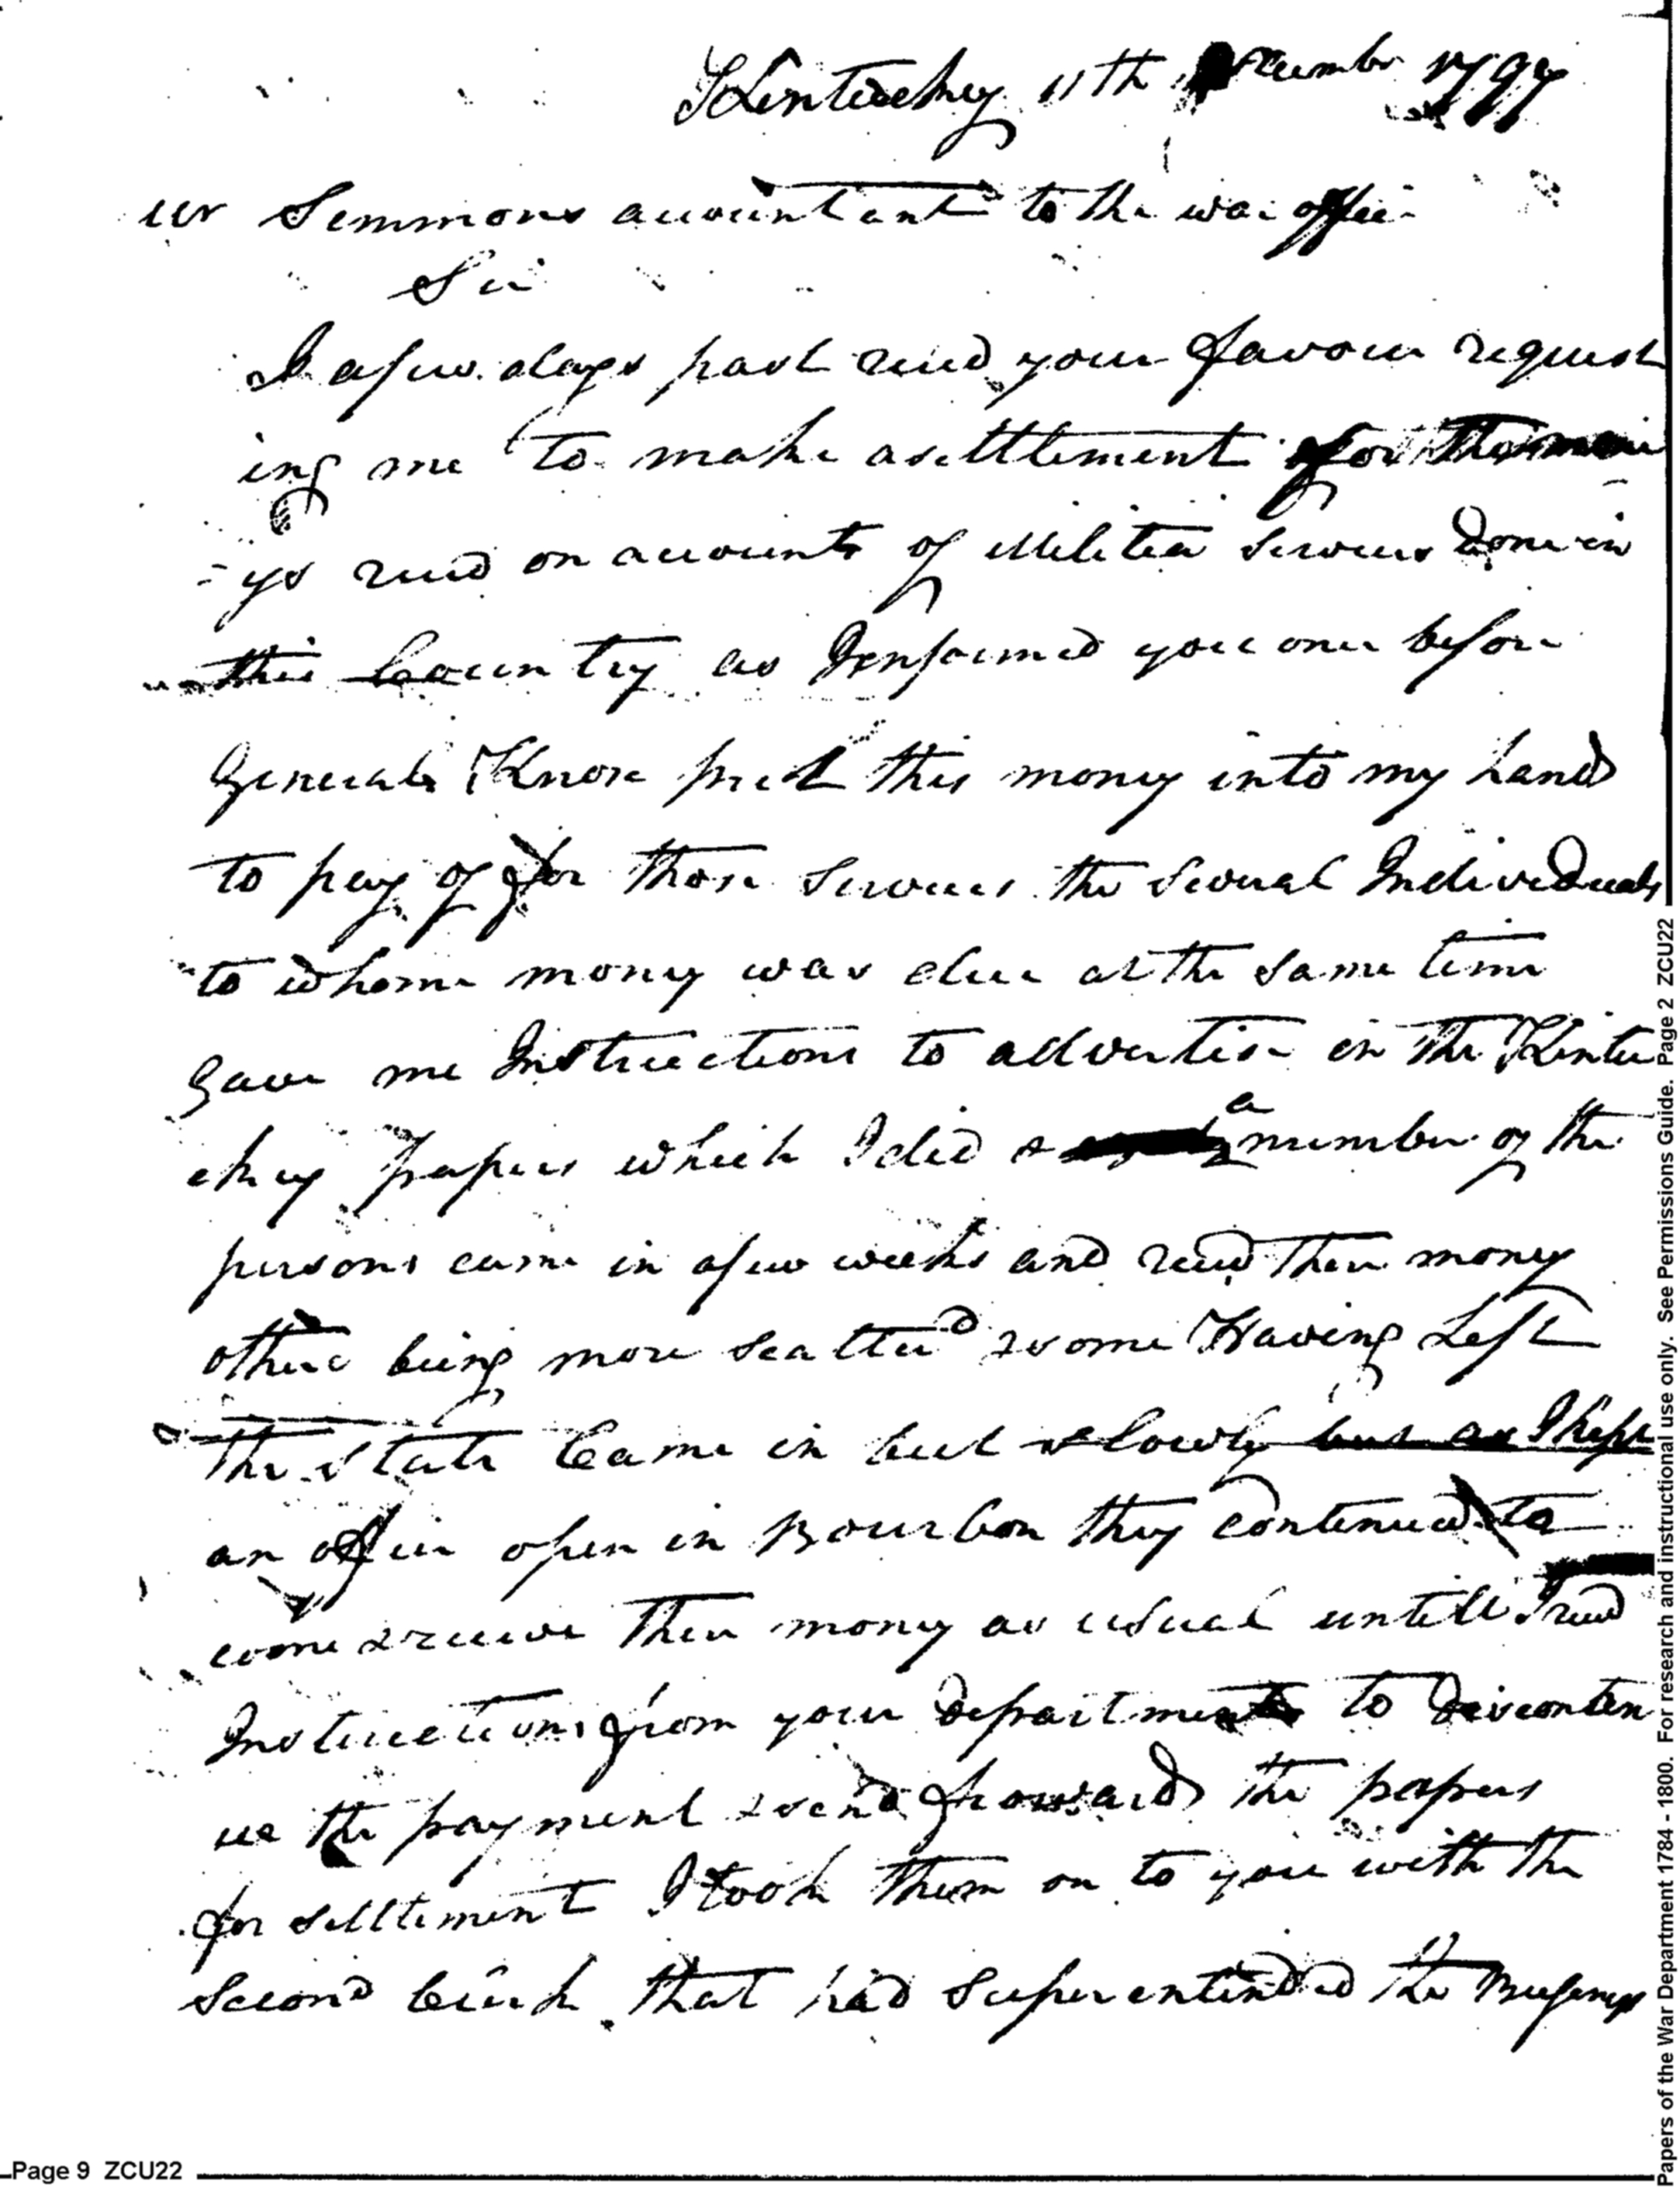 Kentuckey 11th December 1797
Mr Simmons accountant to the war office
Sir
I a few days past recd your favour request
ing me to make a settlement for the mon
ys recd on accounts of Militia services done in
this Country as I informed you once before
General Knox put this money into my hands
to pay of for those services the several Individuals
to whome money was due at the same time
gave me Instructions to advertise in the Kentu
ckey papers which I did & a number of the
persons came in a few weeks and recd their money
others being more scatterd & some Having Left
the state Came in but slowly but as I kept
an office open in Bourbon they continued to
come & receive their money as usual untill I recd
Instructions from your department to discontin
ue the payment & send forward the papers
for settlement I took them on to you with the
second Clerk that had superentended the Business
Page 9 ZCU22
Papers of the War Department 1784 -1800. For research and instructional use only. See Permissions Guide. Page 2 ZCU22